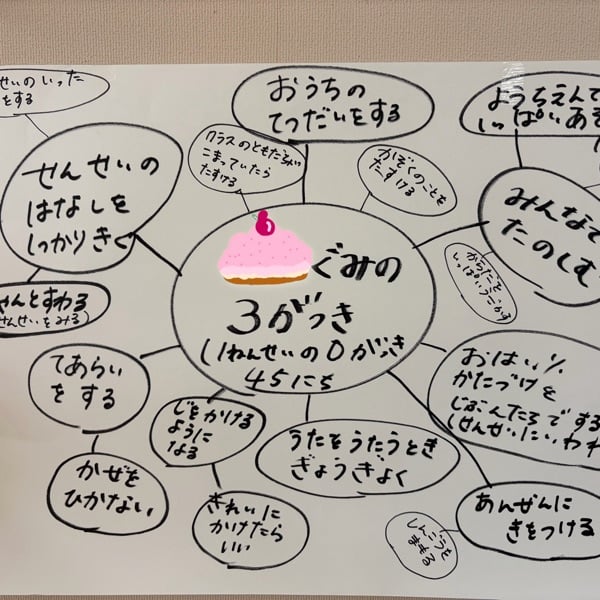 せいのいった
をする
おうちの
てつだいをする
ようちえんで
いっぱいあそ
せんせいの
はなしを
しっかりきく
クラスのともだちが
こまっていたら
たすける
かぞくのことを
たすける
みんなで
たのしむ
からだを
いっぱいうごかす
ぐみの
3がっき
1ねんせいの0がっき
45にち
ゃんとすわる
せんせいをみる)
てあらい
をする
かぜを
ひかない
じをかける
ように
なる
きれいに
かけたら
いい
うたをうたうとき
ぎょうぎよく
かたづけを
じぶんたちでする
(せんせいにいわ
あんぜんに
きをつける
しんごうを
まもる